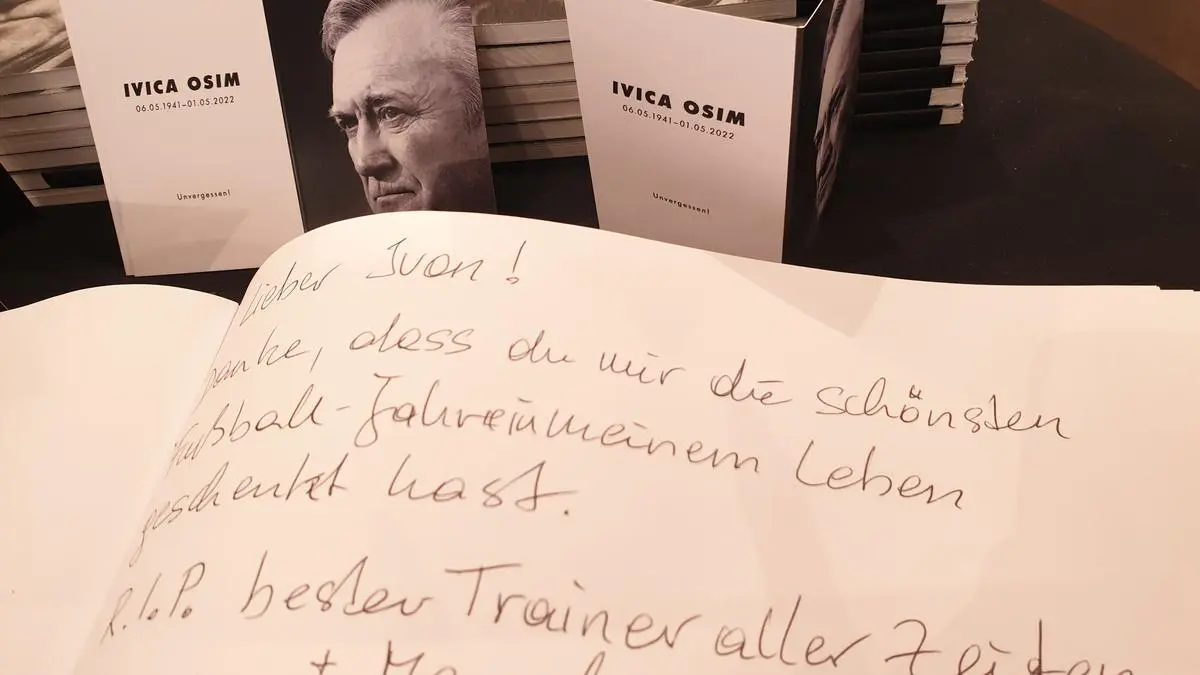 IVICA OSIM
06.05.1941–01.05.2022
Unvergessen!
IVICA OSIM
06.05.1941–01.05.2022
Unvergessen!
Lieber Ivan!
Danke, dass du mir die schönsten
Fußball-Jahre in meinem Leben
geschenkt hast.
R.I.P. bester Trainer aller Zeiten